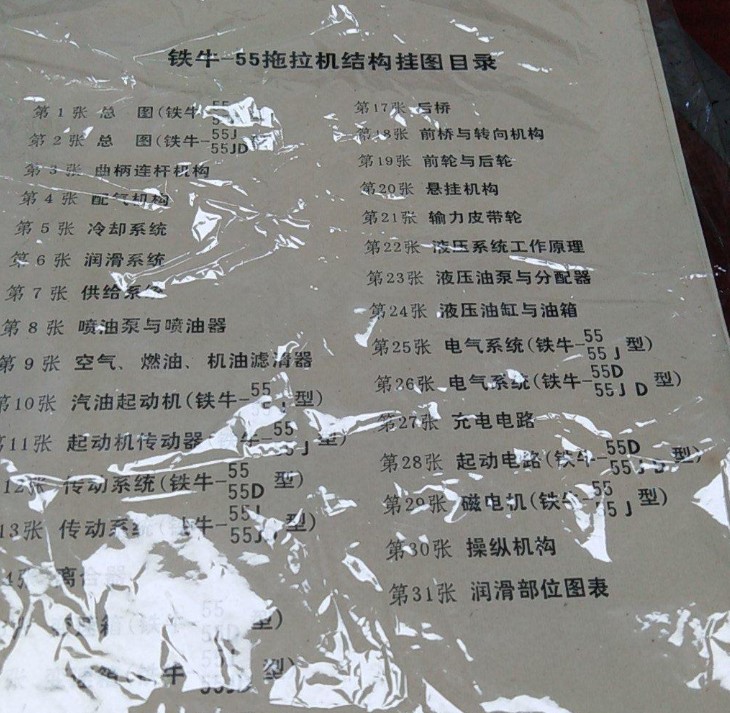 铁牛-55拖拉机结构挂图目录
第1张 总 图(铁牛-55
第2张 总 图(铁牛-55J 55JD
第3张 曲柄连杆机构
第4张 配气机构
第5张 冷却系统
第6张 润滑系统
第7张 供给系统
第8张 喷油泵与喷油器
第9张 空气、燃油、机油滤清器
第10张 汽油起动机(铁牛-55 型)
第11张 起动机传动器 -55 J型)
12张 传动系统(铁牛-55 55D型)
13张 传动系统(铁牛-55J 55J 型)
离合器
箱(铁牛-55 55D型)
牛 型)
第17张 后桥
第18张 前桥与转向机构
第19张 前轮与后轮
第20张 悬挂机构
第21张 输力皮带轮
第22张 液压系统工作原理
第23张 液压油泵与分配器
第24张 液压油缸与油箱
第25张 电气系统(铁牛-55 55J型)
第26张 电气系统(铁牛-55D 55JD型)
第27张 充电电路
第28张 起动电路(铁牛-55D 55JD型)
第29张 磁电机(铁牛-55 55J型)
第30张 操纵机构
第31张 润滑部位图表